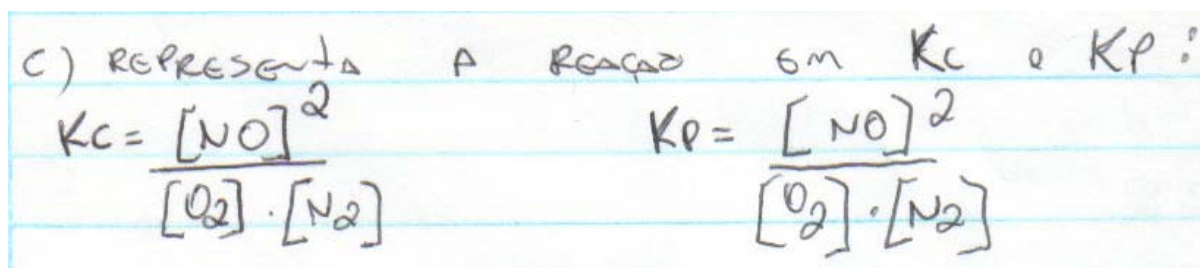 C) REPRESENTA A REAÇAO EM Kc e KP:
Kc = [NO]² / [O₂] . [N₂] KP = [NO]² / [O₂] . [N₂]